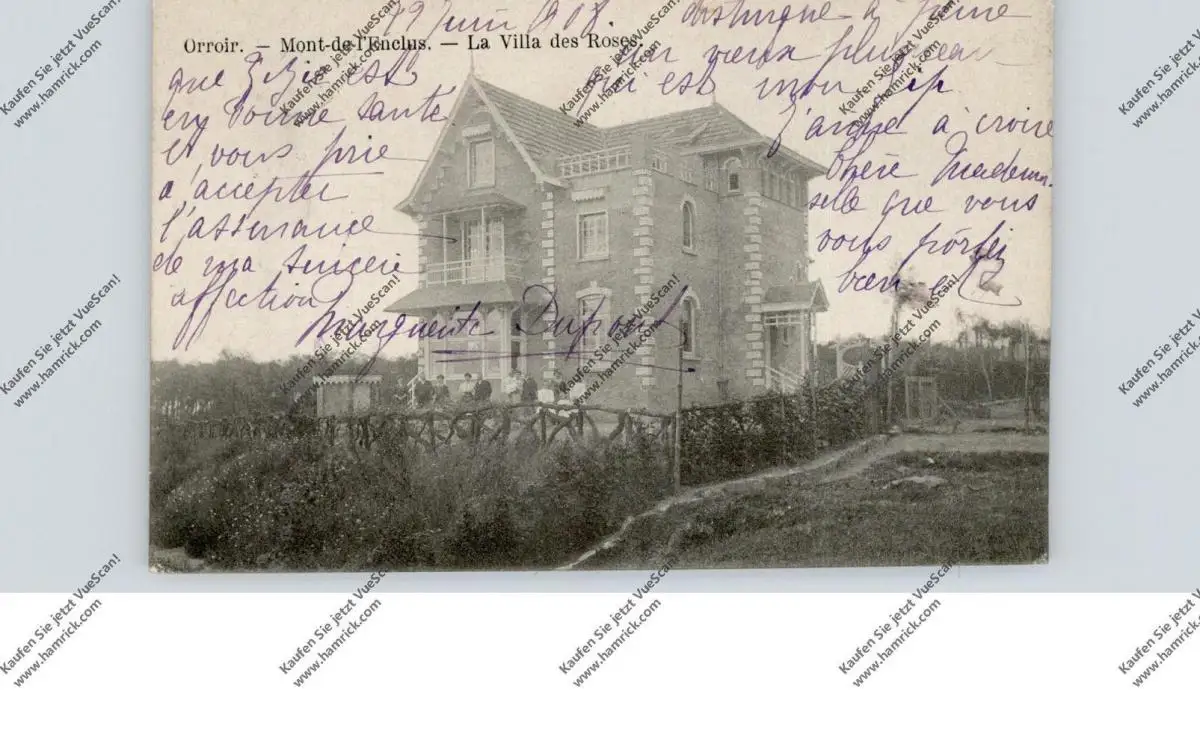 19 Juin 1908.
à peine
Orroir. — Mont-de-l'Enclus. — La Villa des Roses.
un vœux
qui est mon
J'aime à croire
Chère Mademoi-
selle que vous
vous portez
bien et
que Zizie est
en bonne santé
et vous prie
d'accepter
l'assurance
de ma sincère
affection
Marguerite Dupont
Kaufen Sie jetzt VueScan!
www.hamrick.com
Kaufen Sie jetzt VueScan!
www.hamrick.com
Kaufen Sie jetzt VueScan!
www.hamrick.com
Kaufen Sie jetzt VueScan!
www.hamrick.com
Kaufen Sie jetzt VueScan!
www.hamrick.com
Kaufen Sie jetzt VueScan!
www.hamrick.com
Kaufen Sie jetzt VueScan!
www.hamrick.com
Kaufen Sie jetzt VueScan!
www.hamrick.com
Kaufen Sie jetzt VueScan!
www.hamrick.com
Kaufen Sie jetzt VueScan!
www.hamrick.com
Kaufen Sie jetzt VueScan!
www.hamrick.com
Kaufen Sie jetzt VueScan!
www.hamrick.com
Kaufen Sie jetzt VueScan!
www.hamrick.com
Kaufen Sie jetzt VueScan!
www.hamrick.com
Kaufen Sie jetzt VueScan!
www.hamrick.com